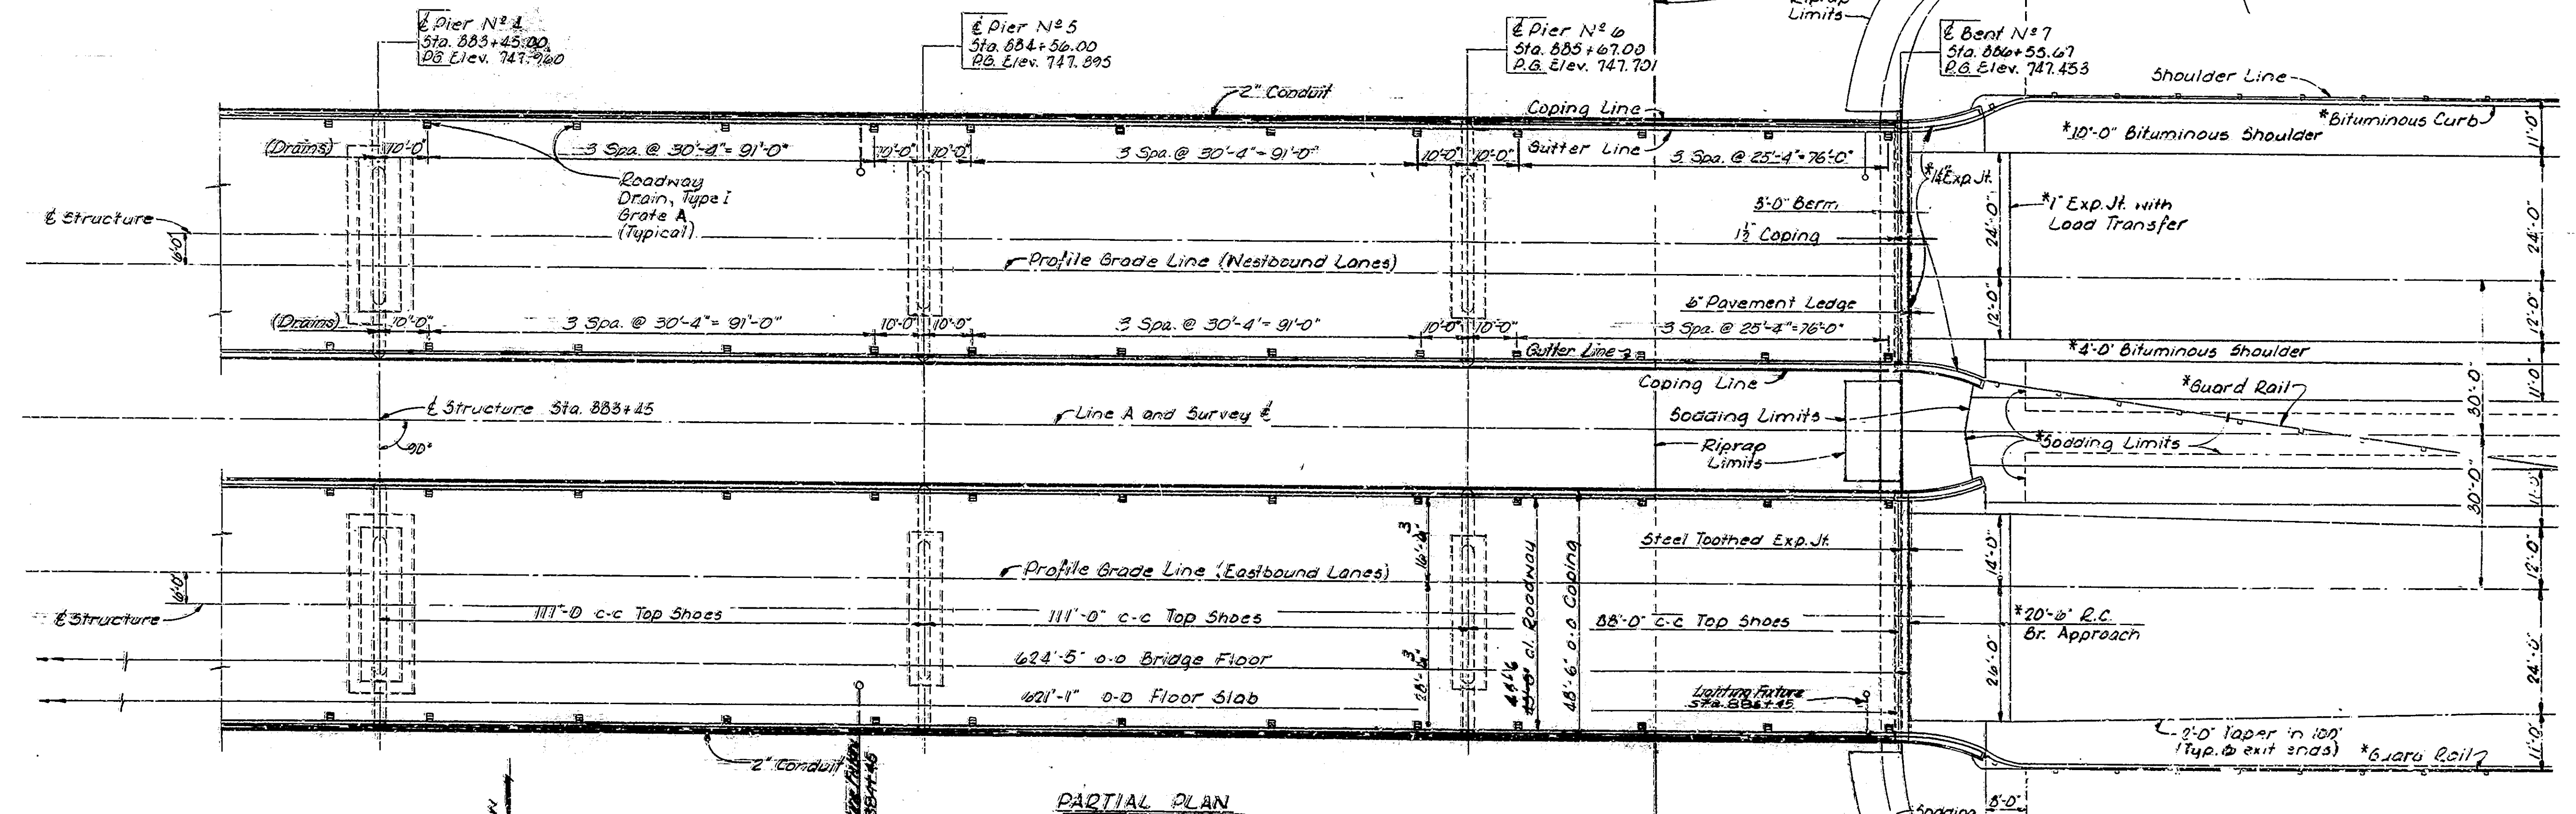 ℄ Pier Nº 4
Sta. 883+45.00
P.G. Elev. 747.960
℄ Pier Nº 5
Sta. 884+56.00
P.G. Elev. 747.895
℄ Pier Nº 6
Sta. 885+67.00
P.G. Elev. 747.701
Riprap
Limits
℄ Bent Nº 7
Sta. 886+55.67
P.G. Elev. 747.453
Shoulder Line
2" Conduit
Coping Line
*Bituminous Curb
*10'-0" Bituminous Shoulder
11'-0"
(Drains)
10'-0"
3 Spa. @ 30'-4" = 91'-0"
10'-0"
10'-0"
3 Spa. @ 30'-4" = 91'-0"
Gutter Line
10'-0"
10'-0"
3 Spa. @ 25'-4" = 76'-0"
Roadway
Drain, Type I
Grate A
(Typical)
Exp. Jt.
3'-0" Berm
1½" Coping
24'-0"
*1" Exp. Jt. with
Load Transfer
24'-0"
℄ Structure
6'-0"
Profile Grade Line (Westbound Lanes)
6" Pavement Ledge
12'-0"
12'-0"
(Drains)
10'-0"
3 Spa. @ 30'-4" = 91'-0"
10'-0"
10'-0"
3 Spa. @ 30'-4" = 91'-0"
10'-0"
10'-0"
3 Spa. @ 25'-4" = 76'-0"
Gutter Line
*4'-0" Bituminous Shoulder
Coping Line
*Guard Rail
30'-0"
11'-0"
℄ Structure Sta. 883+45
Line A and Survey ℄
Sodding Limits
90°
Riprap
Limits
*Sodding Limits
30'-0"
11'-0"
Steel Toothed Exp. Jt.
14'-0"
12'-0"
Profile Grade Line (Eastbound Lanes)
6'-0"
℄ Structure
111'-0 c-c Top Shoes
111'-0" c-c Top Shoes
88'-0" c-c Top Shoes
cl. Roadway
48'-6" o-o Coping
*20'-6" R.C.
Br. Approach
624'-5" o-o Bridge Floor
621'-1" o-o Floor Slab
Lighting Fixture
Sta. 886+45
26'-0"
24'-0"
2'-0" Taper in 100'
(Typ. @ exit ends)
*Guard Rail
11'-0"
2" Conduit
884+45
PARTIAL PLAN
Sodding
8'-0"